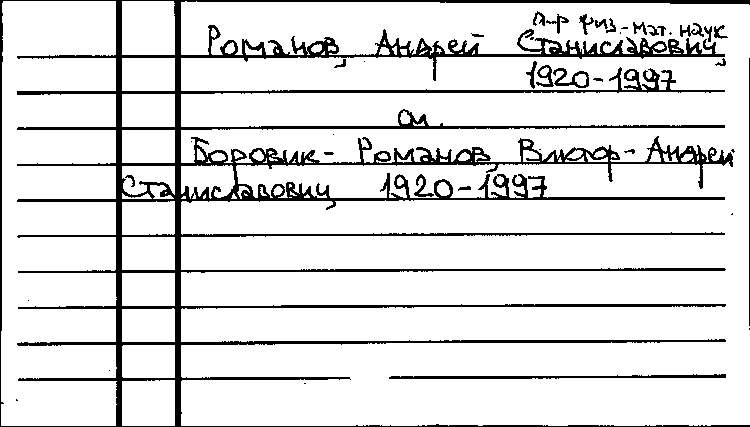 д-р физ-мат. наук
Романов, Андрей Станиславович,
1920-1997
см.
Боровик-Романов, Виктор-Андрей
Станиславович, 1920-1997